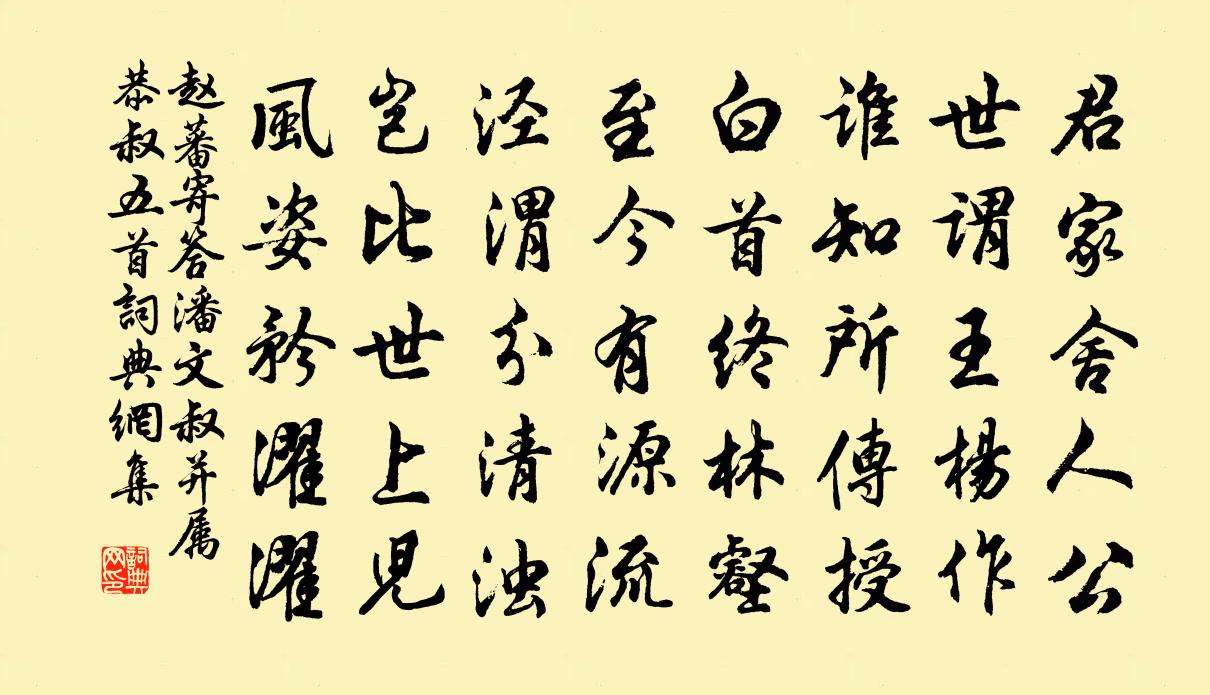 君家舍人公
世谓王楊作
誰知所傳授
白首终林壑
至今有源流
泾渭分清浊
岂比世上児
風姿矜濯濯
赵蕃寄答潘文叔并属
恭叔五首詞典網集
詞典
网印